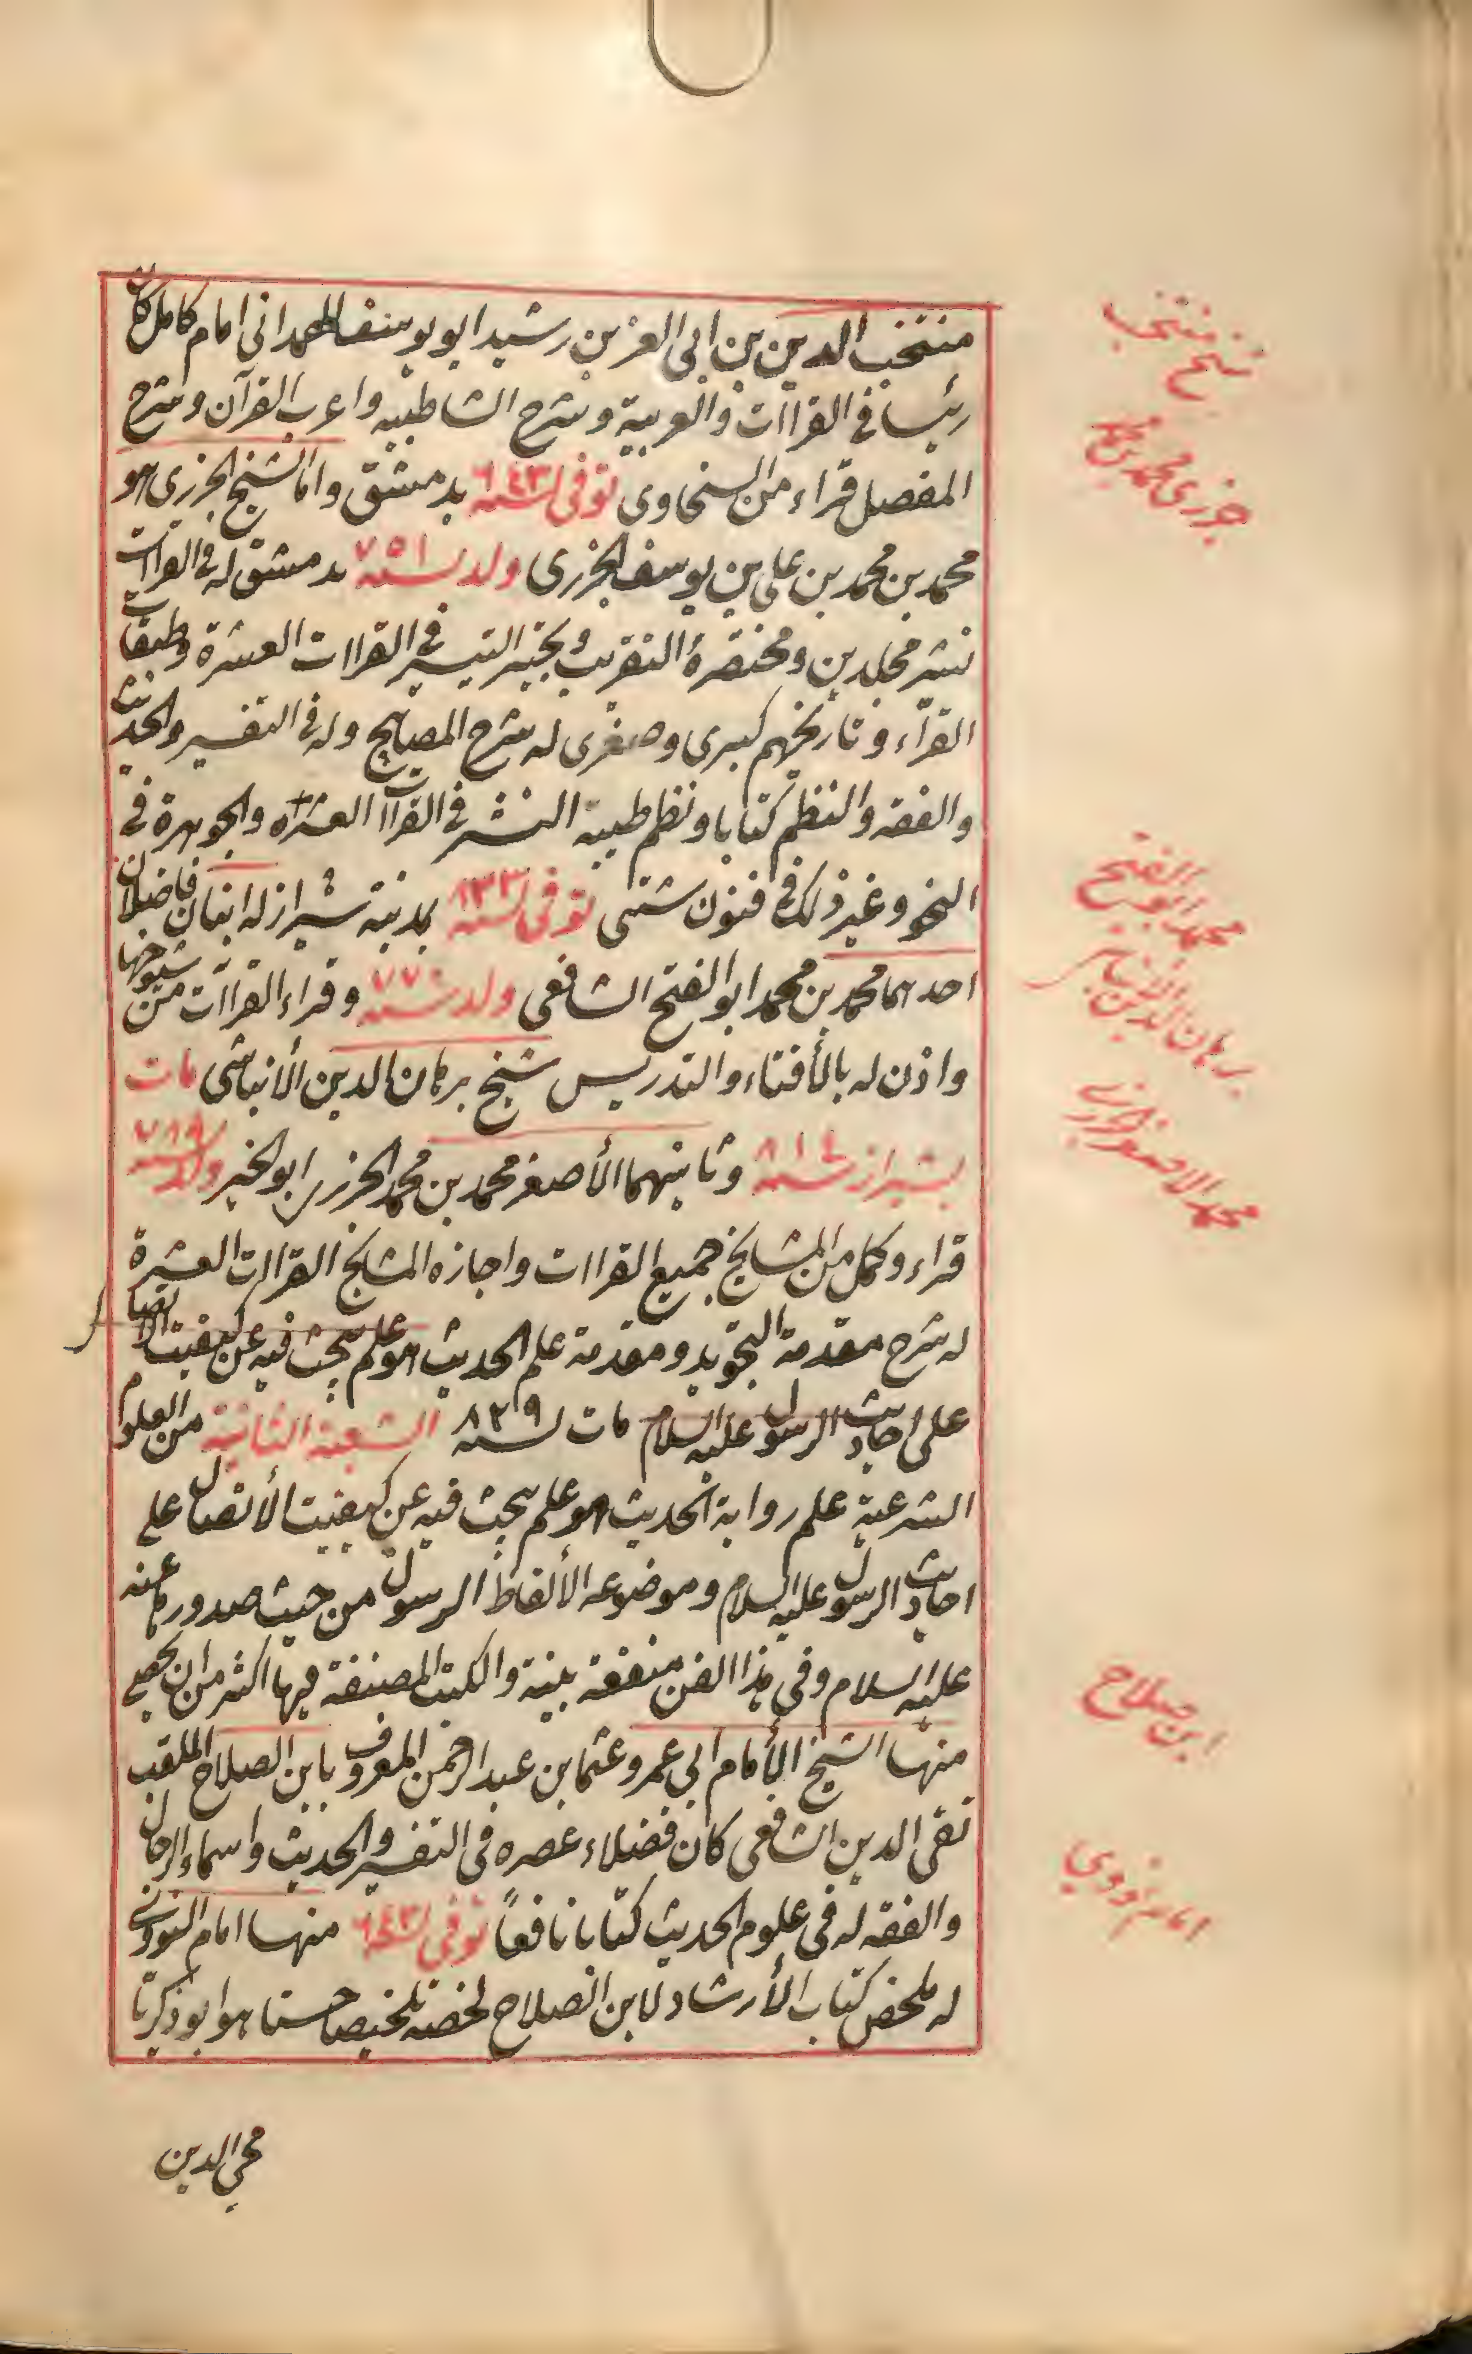 منتخب الدين بن ابى العز بن رشيد ابو يوسف الهمدانى امام كامل كان
رئيسا فى القراآت والعربية وشرح الشاطبيه واعرب القرآن وشرح
المفصل قراء من السخاوى توفى سنه ٦٤٣ بدمشق واما الشيخ الجزرى هو
محمد بن محمد بن على بن يوسف الجزرى ولد سنه ٧٥١ بدمشق له فى القراآت
نشر مجلدين ومختصرهُ التقريب وتحبير التيسير فى القراات العشرة وطبقات
القرآء وتاريخهم كبرى وصغرى له شرح المصابيح وله فى التفسير والحديث
والفقه والنظم كتابا ونظم طيبة النشر فى القرآآ العشراه والجوهرة فى
النحو وغير ذلك فى فنون شتى توفى سنه ٨٣٣ بمدينه شيراز له ابنان فاضلان
احدهما محمد بن محمد ابو الفتح الشافعى ولد سنه ٧٧٠ وقراء القراآت من شيوخها
واذن له بالأفتاء والتدريس شيخ برهان الدين الأنباسى مات
بشيراز سنه ٨١٤ وثانيهما الأصغر محمد بن محمد الجزرى ابو الخير ولد سنه ٧٨٩
قراء وكمل من المشايخ جميع القراات واجازه المشايخ القراات العشرة
له شرح مقدمة التجويد ومقدمة علم الحديث هو علم يبحث فيه عن كيفيت الاتصال
على احاديث الرسول عليه السلام مات سنه ٨٢٩ الشعبة الثانية من العلوم
الشرعية علم رواية الحديث هو علم يبحث فيه عن كيفيت الأتصال على
احاديث الرسول عليه السلام وموضوعه الألفاظ الرسول من حيث صدورها عنه
عليه السلام وفى هذا الفن منفعة بينة والكتب المصنفة فيها اكثر من ان يحصى
منها الشيخ الأمام ابى عمرو عثما بن عبد الرحمن المعروف بابن الصلاح الملقب
تقى الدين الشافعى كان فضلاء عصره فى التفسير والحديث واسماء الرجال
والفقه له فى علوم الحديث كتابا نافعاً توفى سنه ٦٤٣ منها امام النووى
له ملخص كتاب الأرشاد لابن الصلاح لخصه تلخيصا حسنا هو ابو ذكريا
محى الدين
شيخ منتخب
جزرى محمد بن محمد
محمد ابو الفتح
برهان الدين
محمد الاصغر الجزرى
ابن صلاح
امام نووي